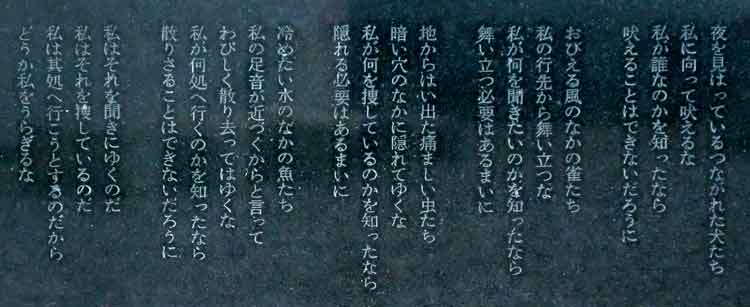 夜を見はっているつながれた犬たち
私に向って吠えるな
私が誰なのかを知ったなら
吠えることはできないだろうに
おびえる風のなかの雀たち
私の行先から舞い立つな
私が何を聞きたいのかを知ったなら
舞い立つ必要はあるまいに
地からはい出た痛ましい虫たち
暗い穴のなかに隠れてゆくな
私が何を捜しているのかを知ったなら
隠れる必要はあるまいに
冷めたい水のなかの魚たち
私の足音が近づくからと言って
わびしく散り去ってはゆくな
私が何処へ行くのかを知ったなら
散りさることはできないだろうに
私はそれを聞きにゆくのだ
私はそれを捜しているのだ
私は其処へ行こうとするのだから
どうか私をうらぎるな